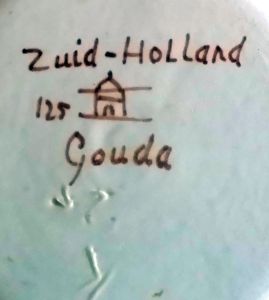 Zuid-Holland
125
Gouda